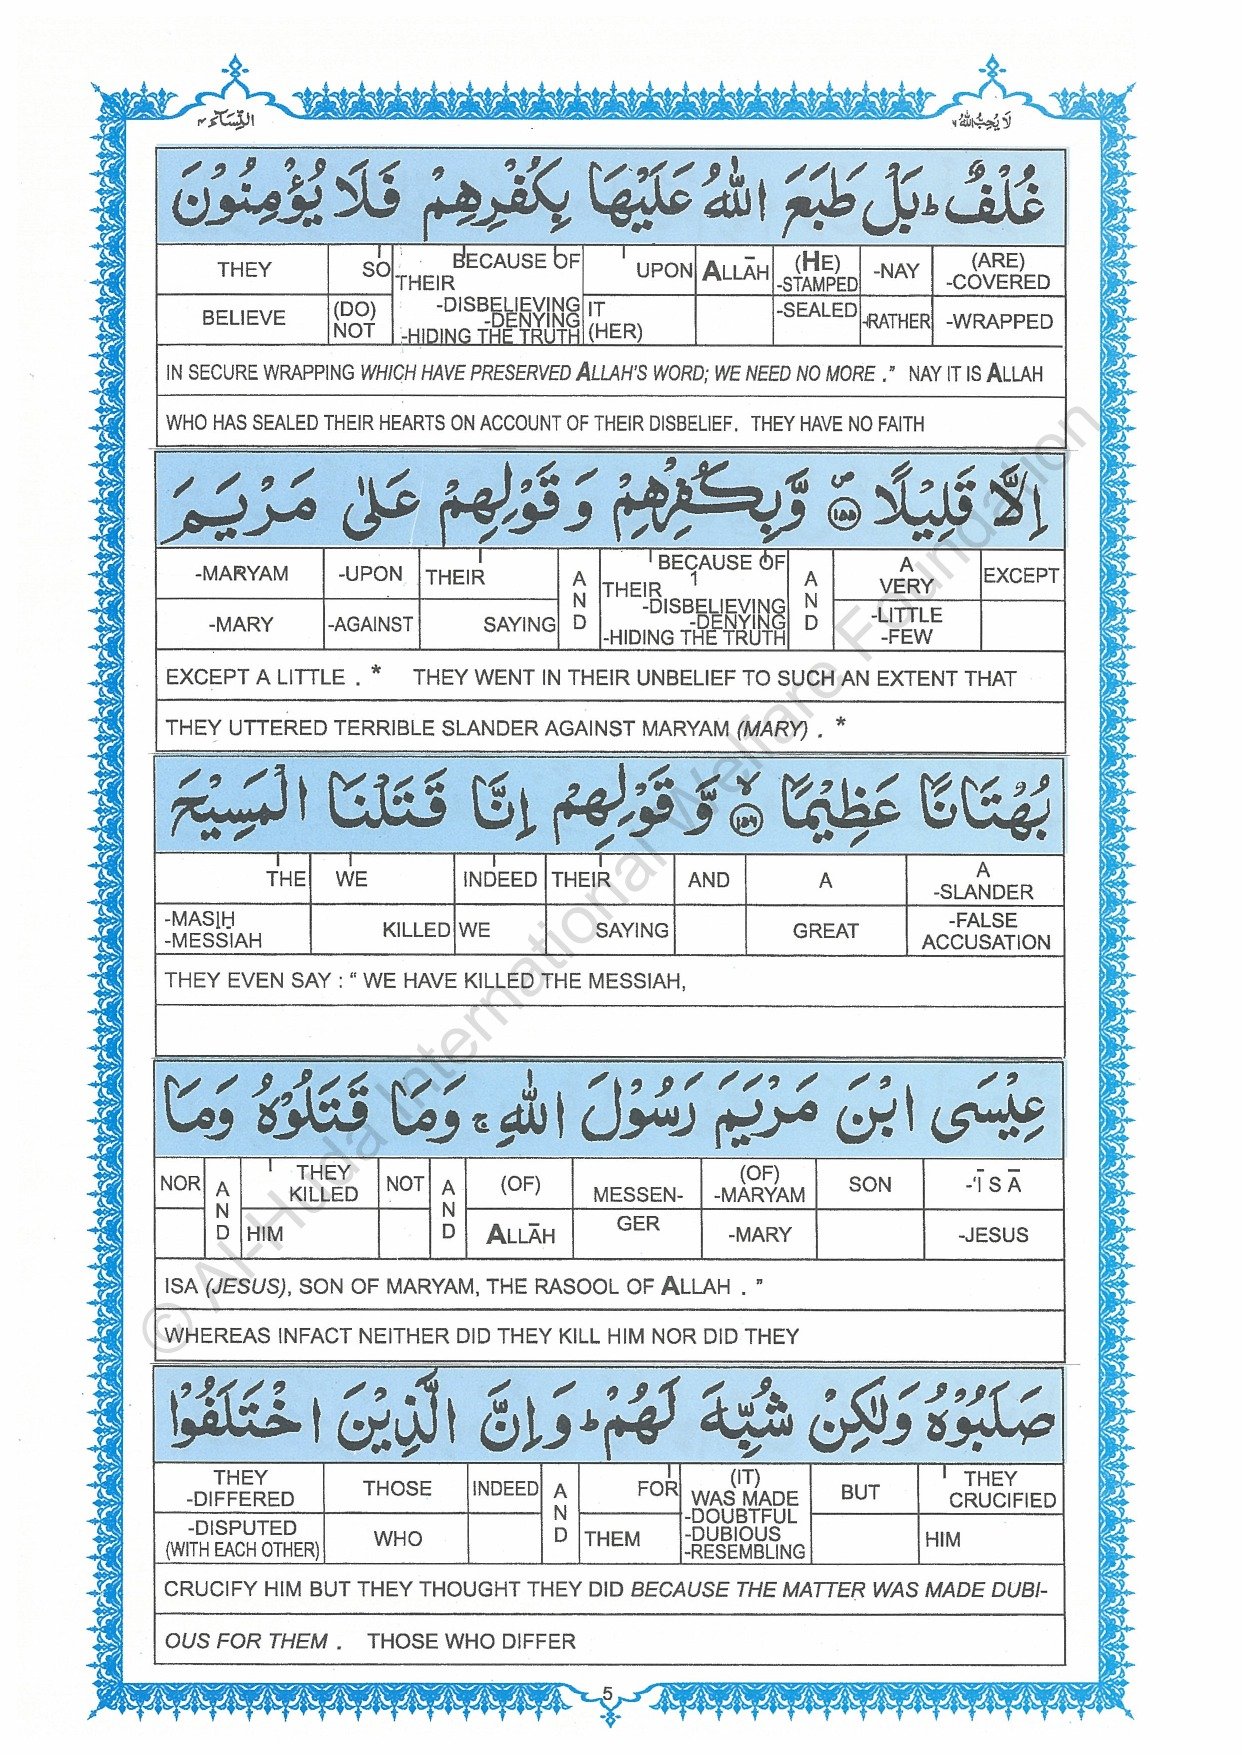 النِّسَآء ٤
لَا يُحِبُّ اللهُ ٦
غُلْفٌ ؕ بَلْ طَبَعَ اللهُ عَلَيْهَا بِكُفْرِهِمْ فَلَا يُؤْمِنُوْنَ
THEY SO BECAUSE OF THEIR UPON ALLĀH (HE) -STAMPED -NAY (ARE) -COVERED
BELIEVE (DO) NOT -DISBELIEVING -DENYING -HIDING THE TRUTH IT (HER) -SEALED -RATHER -WRAPPED
IN SECURE WRAPPING WHICH HAVE PRESERVED ALLAH'S WORD; WE NEED NO MORE ." NAY IT IS ALLAH
WHO HAS SEALED THEIR HEARTS ON ACCOUNT OF THEIR DISBELIEF. THEY HAVE NO FAITH
اِلَّا قَلِيْلًا ۪ ۝١٥٥ وَّبِكُفْرِهِمْ وَقَوْلِهِمْ عَلٰى مَرْيَمَ
-MARYAM -UPON THEIR AND BECAUSE OF THEIR AND A VERY EXCEPT
-MARY -AGAINST SAYING -DISBELIEVING -DENYING -HIDING THE TRUTH -LITTLE -FEW
EXCEPT A LITTLE . * THEY WENT IN THEIR UNBELIEF TO SUCH AN EXTENT THAT
THEY UTTERED TERRIBLE SLANDER AGAINST MARYAM (MARY) . *
بُهْتَانًا عَظِيْمًا ۙ ۝١٥٦ وَّقَوْلِهِمْ اِنَّا قَتَلْنَا الْمَسِيْحَ
THE WE INDEED THEIR AND A A -SLANDER
-MASIḤ -MESSIAH KILLED WE SAYING GREAT -FALSE ACCUSATION
THEY EVEN SAY : " WE HAVE KILLED THE MESSIAH,
عِيْسَى ابْنَ مَرْيَمَ رَسُوْلَ اللهِ ۚ وَمَا قَتَلُوْهُ وَمَا
NOR AND THEY KILLED NOT AND (OF) MESSEN- (OF) -MARYAM SON -'ĪSĀ
HIM ALLĀH GER -MARY -JESUS
ISA (JESUS), SON OF MARYAM, THE RASOOL OF ALLAH . "
WHEREAS INFACT NEITHER DID THEY KILL HIM NOR DID THEY
صَلَبُوْهُ وَلٰكِنْ شُبِّهَ لَهُمْ ؕ وَاِنَّ الَّذِيْنَ اخْتَلَفُوْا
THEY -DIFFERED THOSE INDEED AND FOR (IT) WAS MADE BUT THEY CRUCIFIED
-DISPUTED (WITH EACH OTHER) WHO THEM -DOUBTFUL -DUBIOUS -RESEMBLING HIM
CRUCIFY HIM BUT THEY THOUGHT THEY DID BECAUSE THE MATTER WAS MADE DUBI-
OUS FOR THEM . THOSE WHO DIFFER
5
© Al-Huda International Welfare Foundation